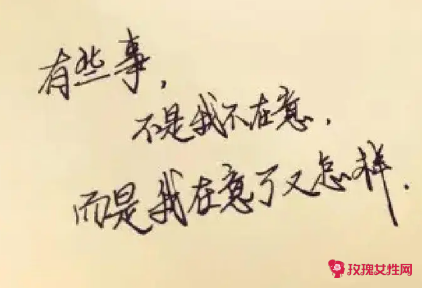 有些事，
不是我不在意，
而是我在意了又怎样．
玫瑰女性网